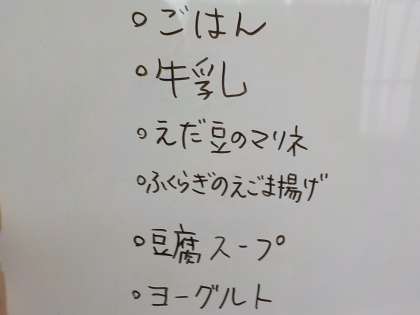 ○ごはん
○牛乳
○えだ豆のマリネ
○ふくらぎのえごま揚げ
○豆腐スープ
○ヨーグルト